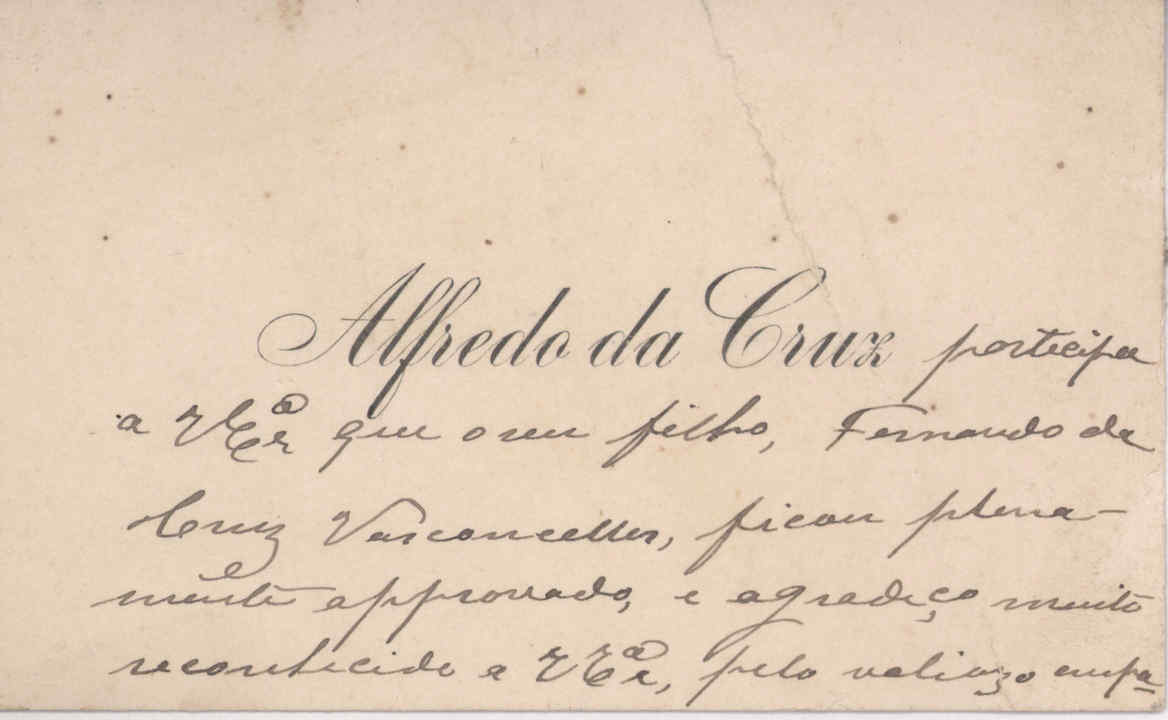 Alfredo da Cruz participa
a V Exª que o seu filho, Fernando da
Cruz Vasconcellos, ficou plena-
mente approvado, e agradeço muito
reconhecido a V Exª, pelo valiozo empa-